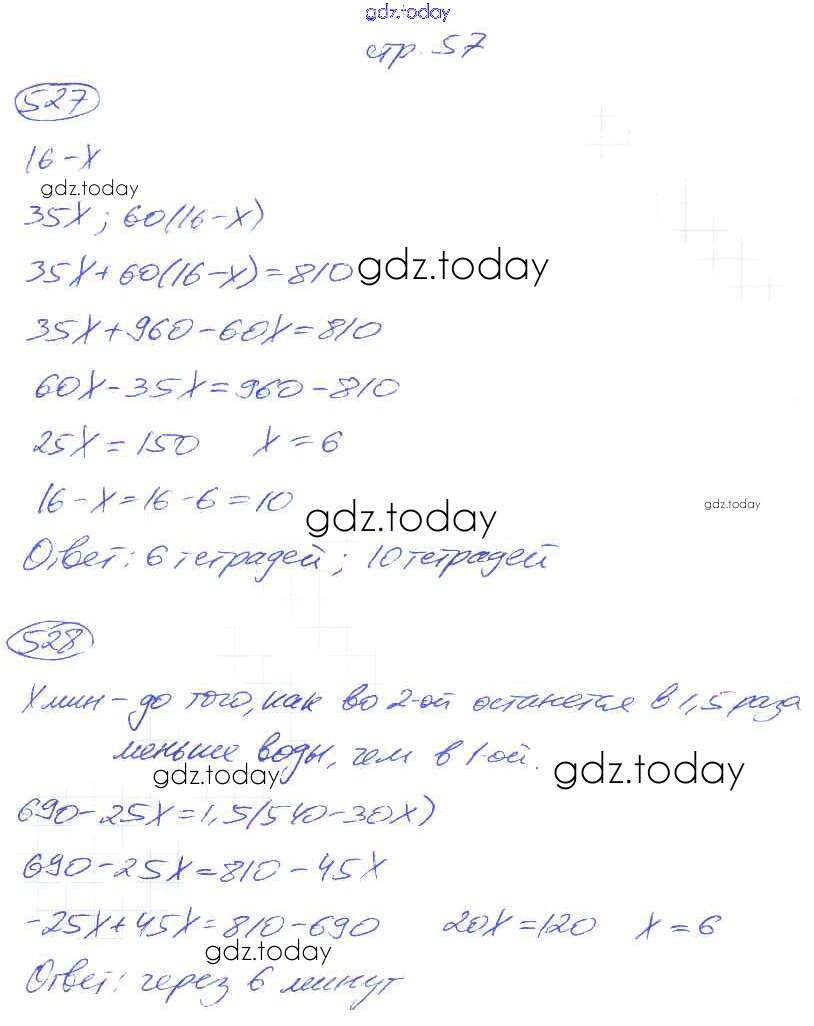 gdz.today
стр. 57
527
16-x
gdz.today
35x; 60(16-x)
35x+60(16-x)=810 gdz.today
35x+960-60x=810
60x-35x=960-810
25x=150 x=6
16-x=16-6=10
gdz.today gdz.today
Ответ: 6 тетрадей; 10 тетрадей
528
x мин - до того, как во 2-ой останется в 1,5 раза
меньше воды, чем в 1-ой.
gdz.today gdz.today
690-25x=1,5(540-30x)
690-25x=810-45x
-25x+45x=810-690 20x=120 x=6
gdz.today
Ответ: через 6 минут